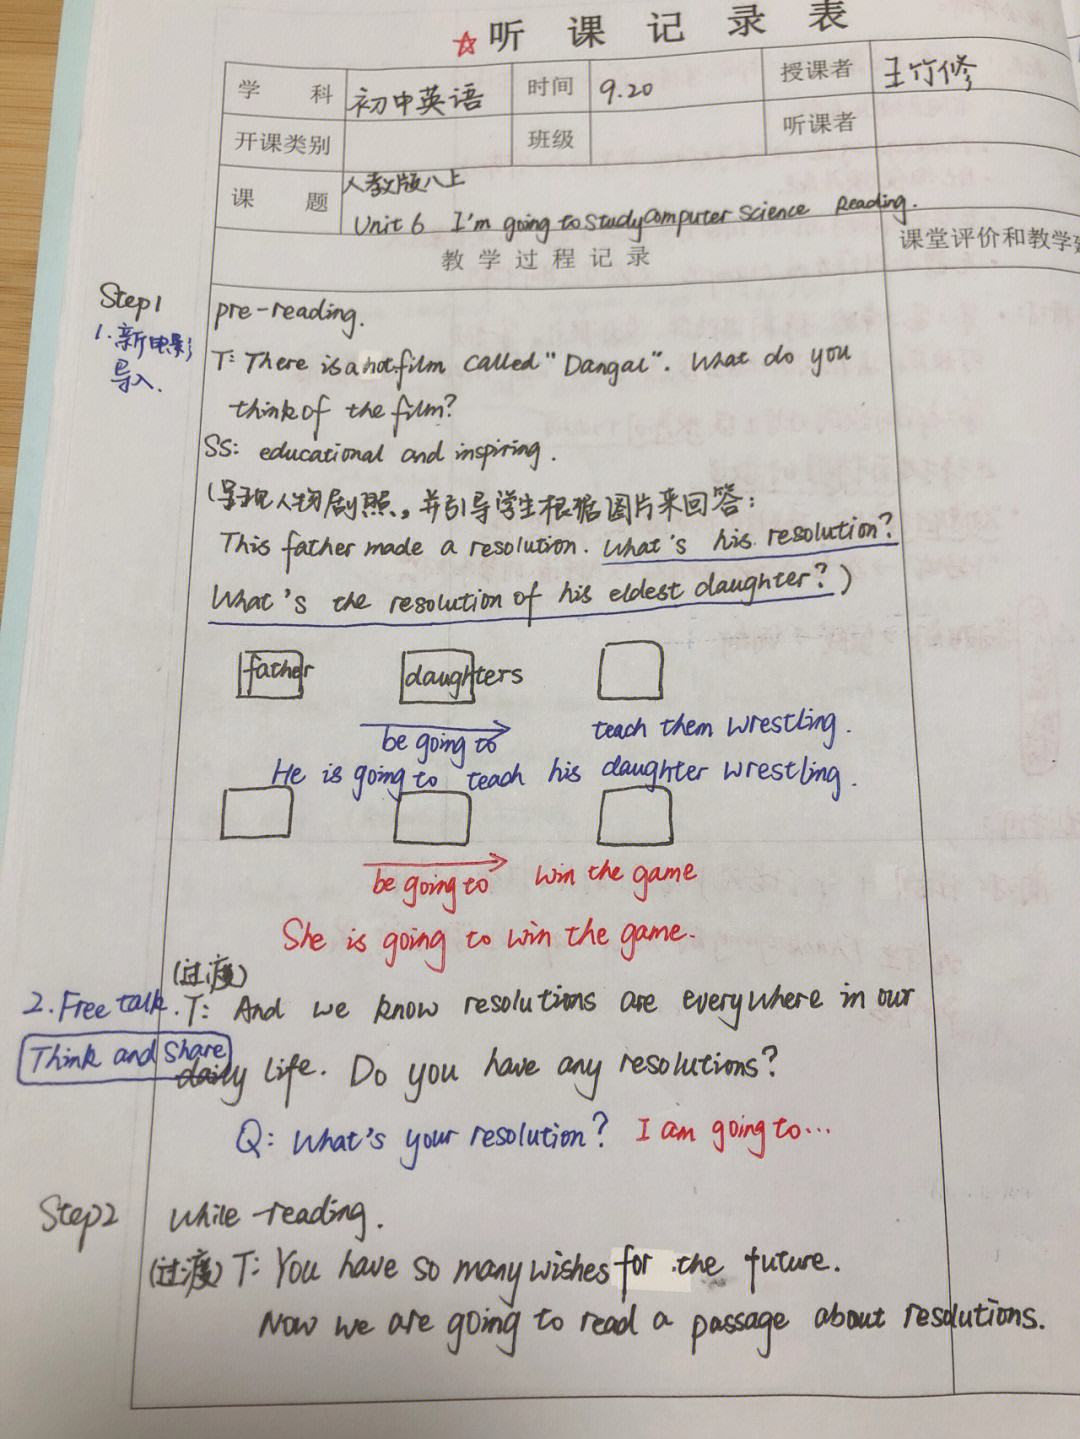 ☆听课记录表
学 科 初中英语 时间 9.20 授课者 王竹修
开课类别 班级 听课者
课 题 人教版八上
Unit 6 I'm going to study computer science Reading.
教学过程记录 课堂评价和教学
Step1 pre-reading.
1.新电影
导入.
T: There is a hot film called "Dangal". What do you
think of the film?
SS: educational and inspiring.
(呈现人物剧照,并引导学生根据图片来回答:
This father made a resolution. What's his resolution?
What's the resolution of his eldest daughter?)
father daughters
be going to teach them wrestling.
He is going to teach his daughter wrestling.
be going to win the game
She is going to win the game.
(过渡)
2. Free talk. T: And we know resolutions are everywhere in our
Think and Share
daily life. Do you have any resolutions?
Q: What's your resolution? I am going to...
Step2 While-reading.
(过渡) T: You have so many wishes for the future.
Now we are going to read a passage about resolutions.